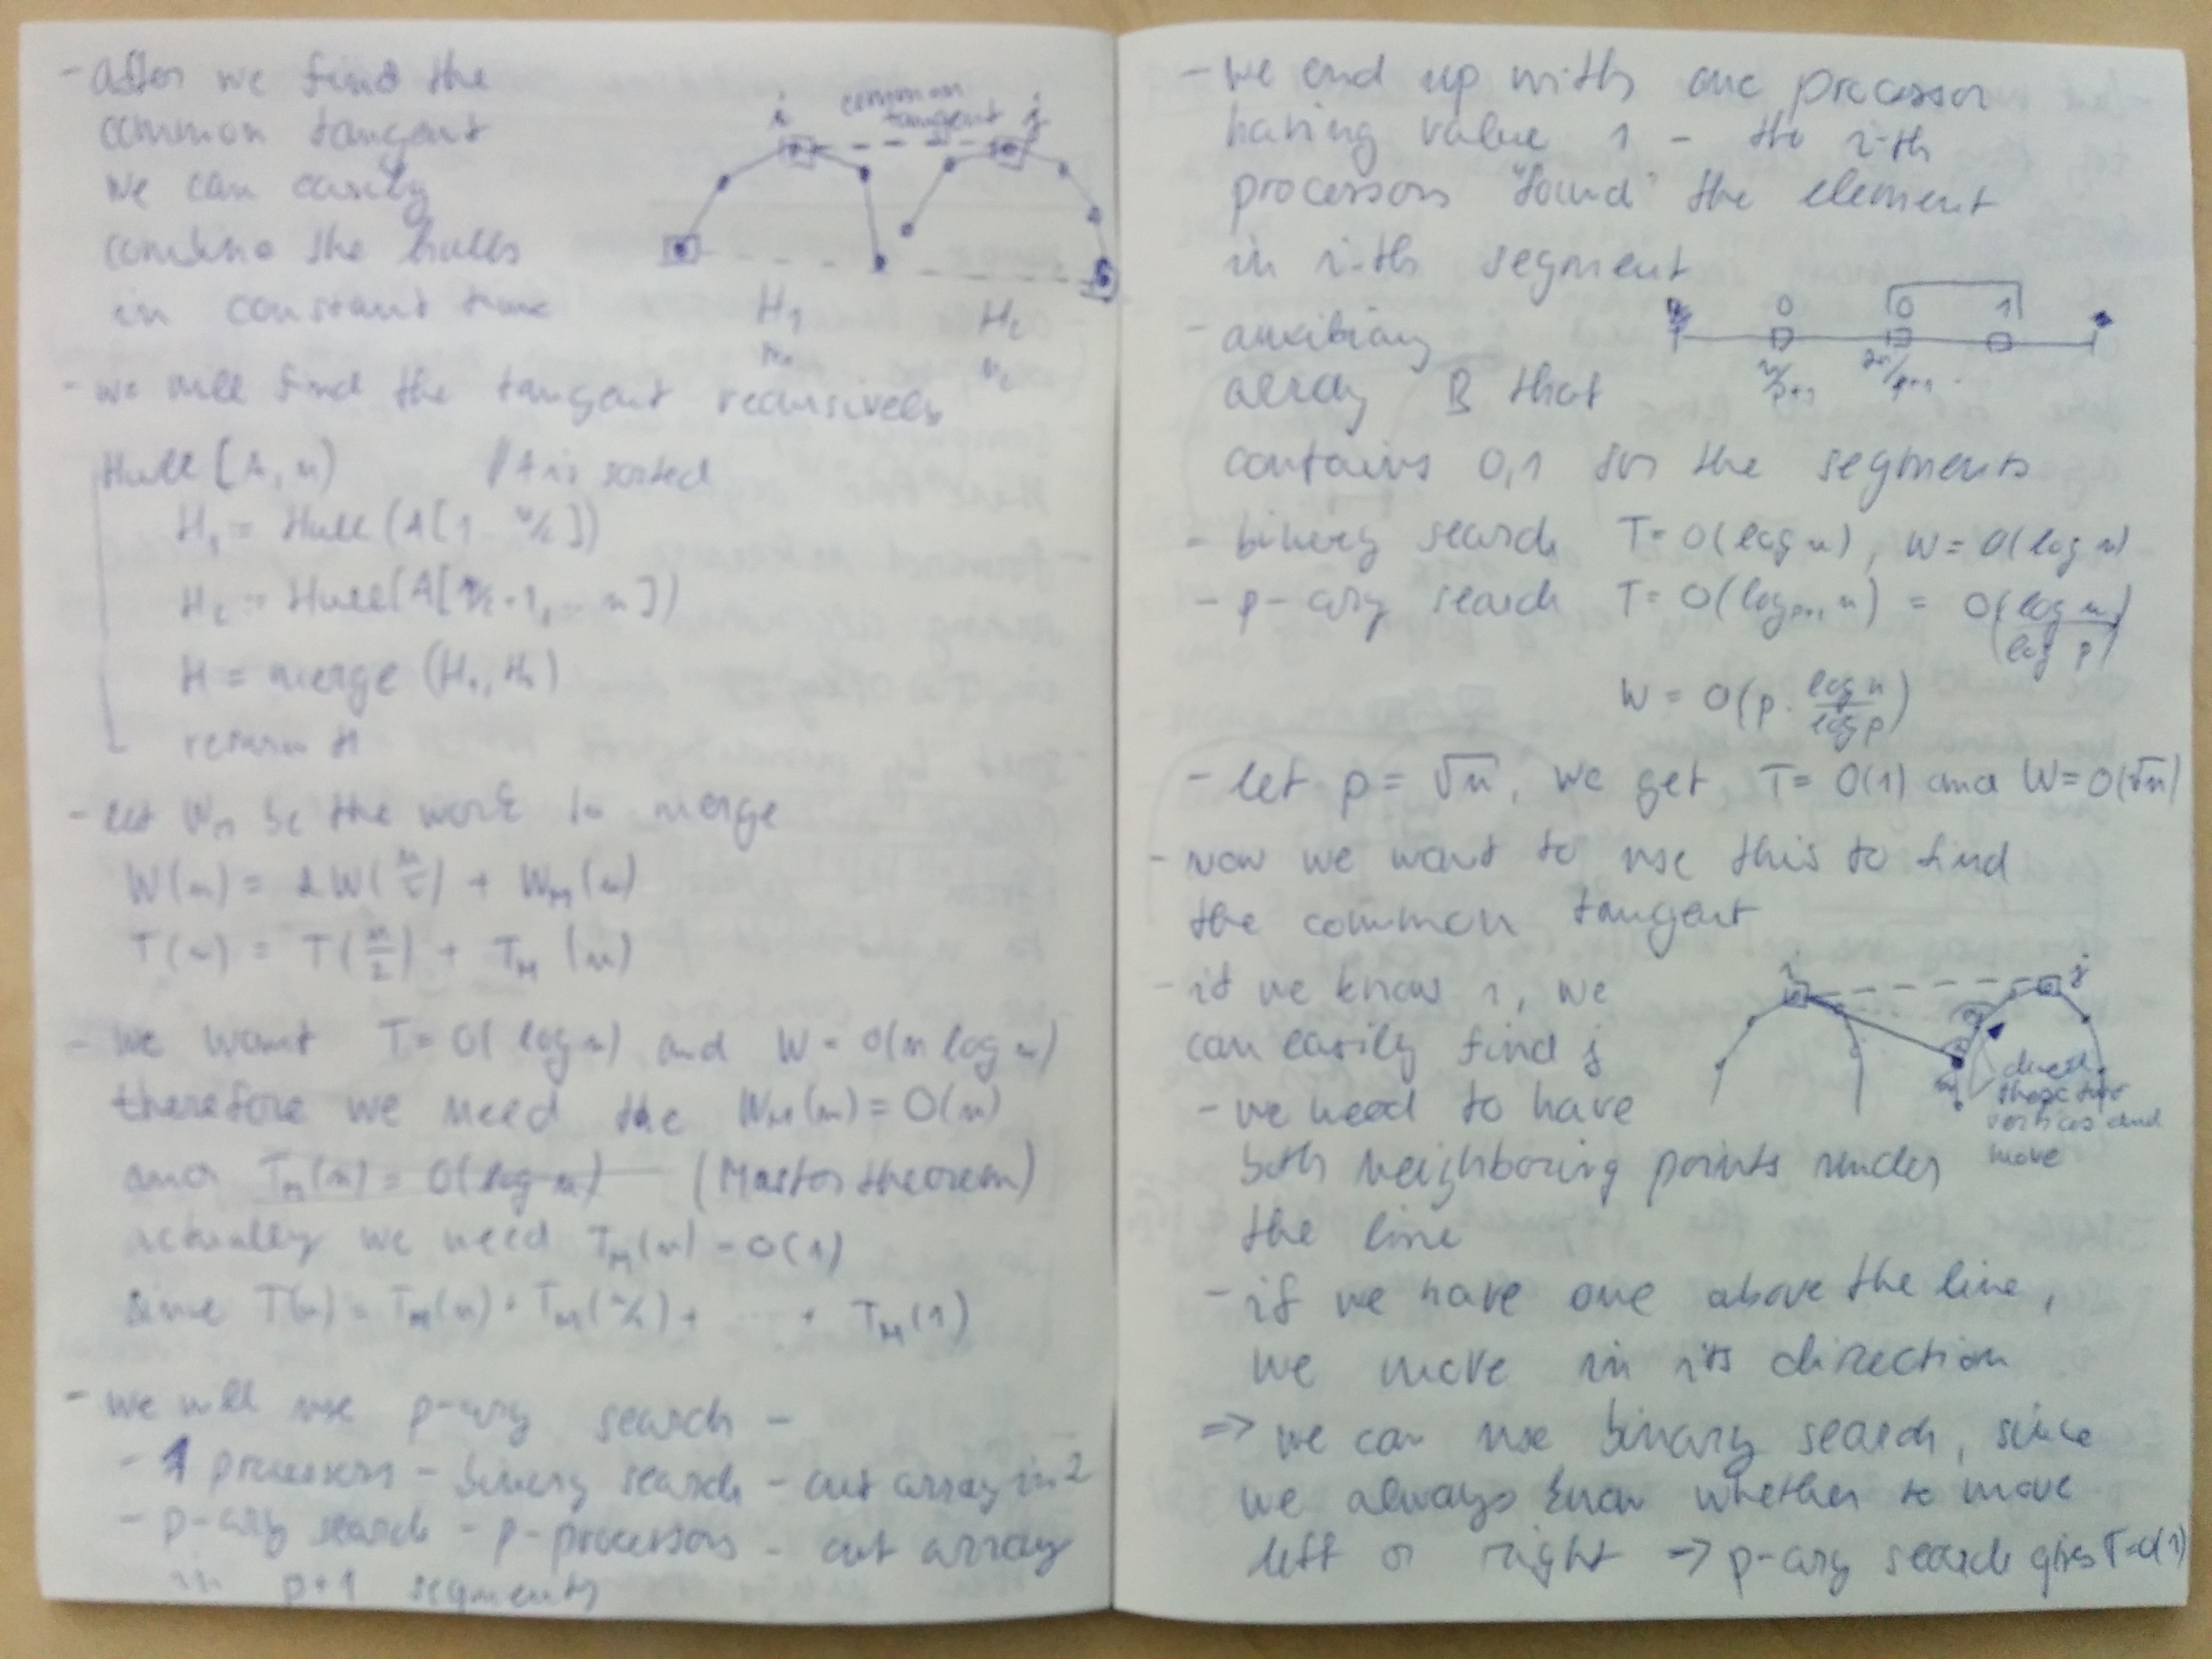 - after we find the
common tangent
we can easily
combine the hulls
in constant time
i common tangent j
H₁ H₂
n₁ n₂
- we will find the tangent recursively
Hull (A, n) // A is sorted
H₁ = Hull (A[1.. n/2])
H₂ = Hull (A[n/2+1, .. n])
H = merge (H₁, H₂)
return H
- let Wₘ be the work to merge
W(n) = 2W(n/2) + W_M(n)
T(n) = T(n/2) + T_M(n)
- we want T = O(log n) and W = O(n log n)
therefore we need the W_M(n) = O(n)
and T_M(n) = O(log n) (Master theorem)
actually we need T_M(n) = O(1)
since T(n) = T_M(n) + T_M(n/2) + ... + T_M(1)
- we will use p-ary search -
- 1 processors - binary search - cut array in 2
- p-ary search - p-processors - cut array
in p+1 segments
- we end up with one processor
having value 1 - the i-th
processors "found" the element
in i-th segment
0 0 1
n/p+1 2n/p+1
- auxiliary
array B that
contains 0,1 for the segments
- binary search T = O(log n), W = O(log n)
- p-ary search T = O(log_{p+1} n) = O(log n / log p)
W = O(p · log n / log p)
- let p = √n, we get T = O(1) and W = O(√n)
- now we want to use this to find
the common tangent
- if we know i, we
can easily find j
i j
m
check
these two
vertices and
move
- we need to have
both neighbouring points under
the line
- if we have one above the line,
we move in its direction
⇒ we can use binary search, since
we always know whether to move
left or right ⇒ p-ary search gives T=O(1)